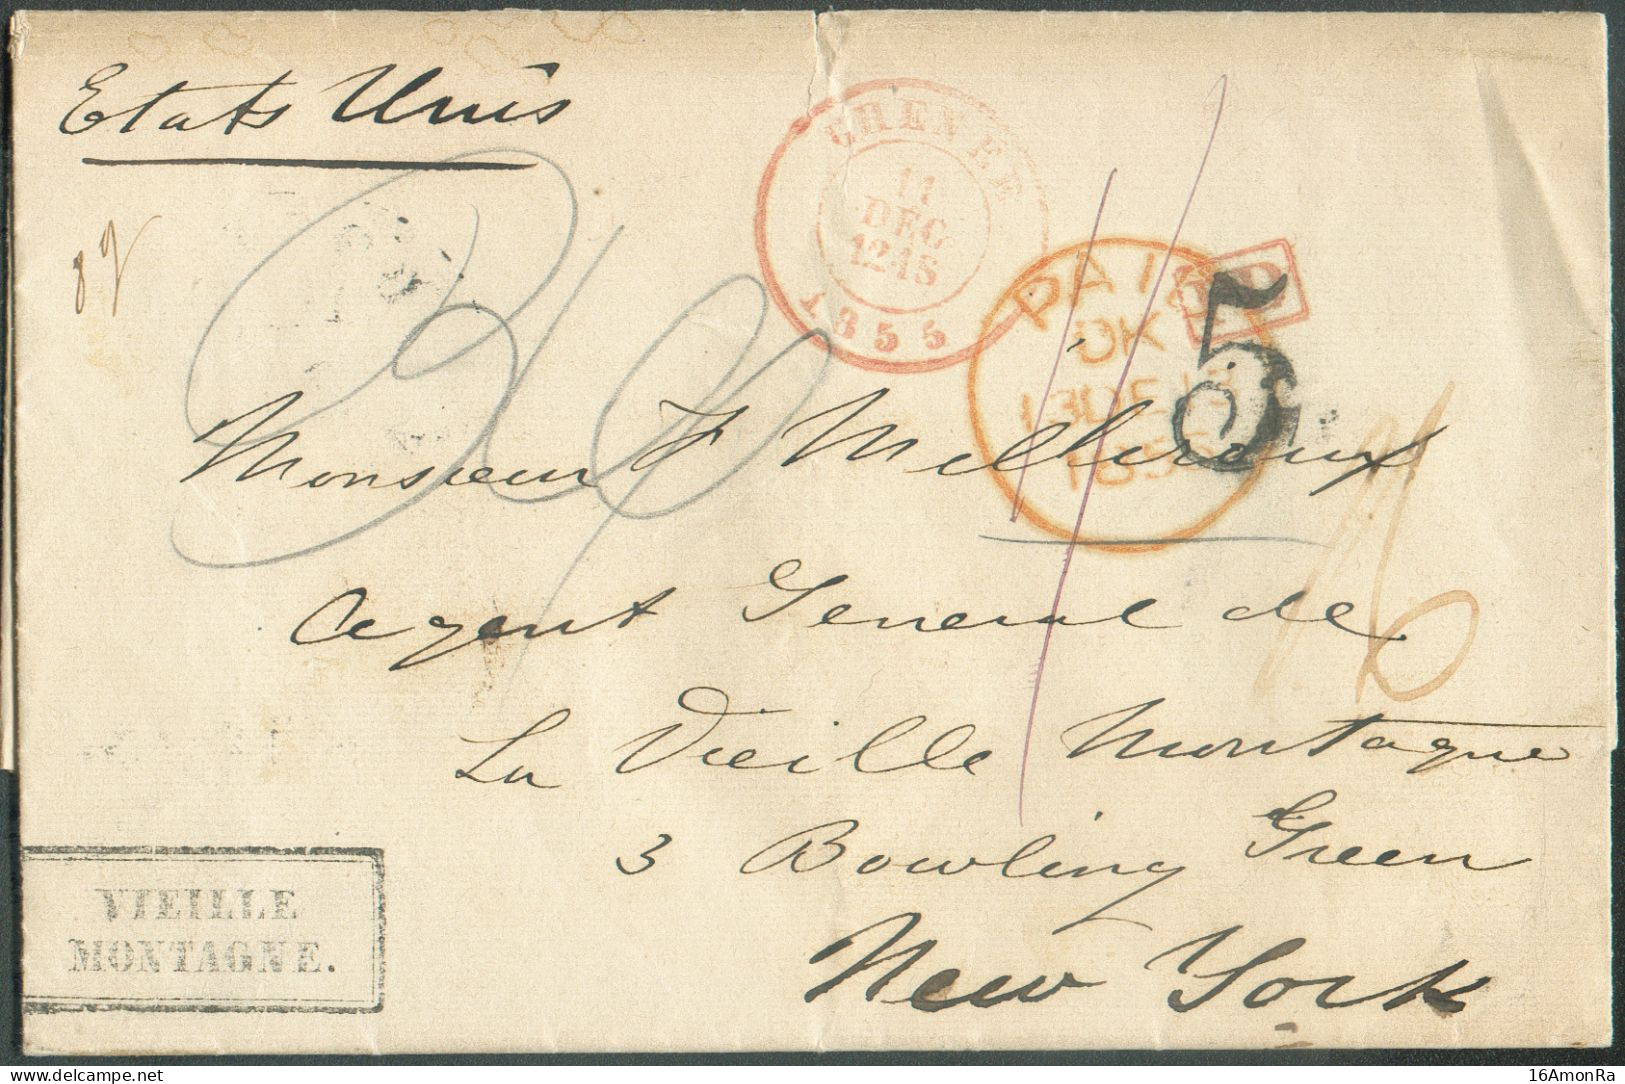 Etats Unis
CHENEE
11
DEC
12-4S
1855
PAID
CK
13DE13
1855
PD
5
89
Monsieur F Milleroux
Agent General de
La Vieille Montagne
3 Bowling Green
New York
VIEILLE
MONTAGNE.
delcampe.net
16AmonRa